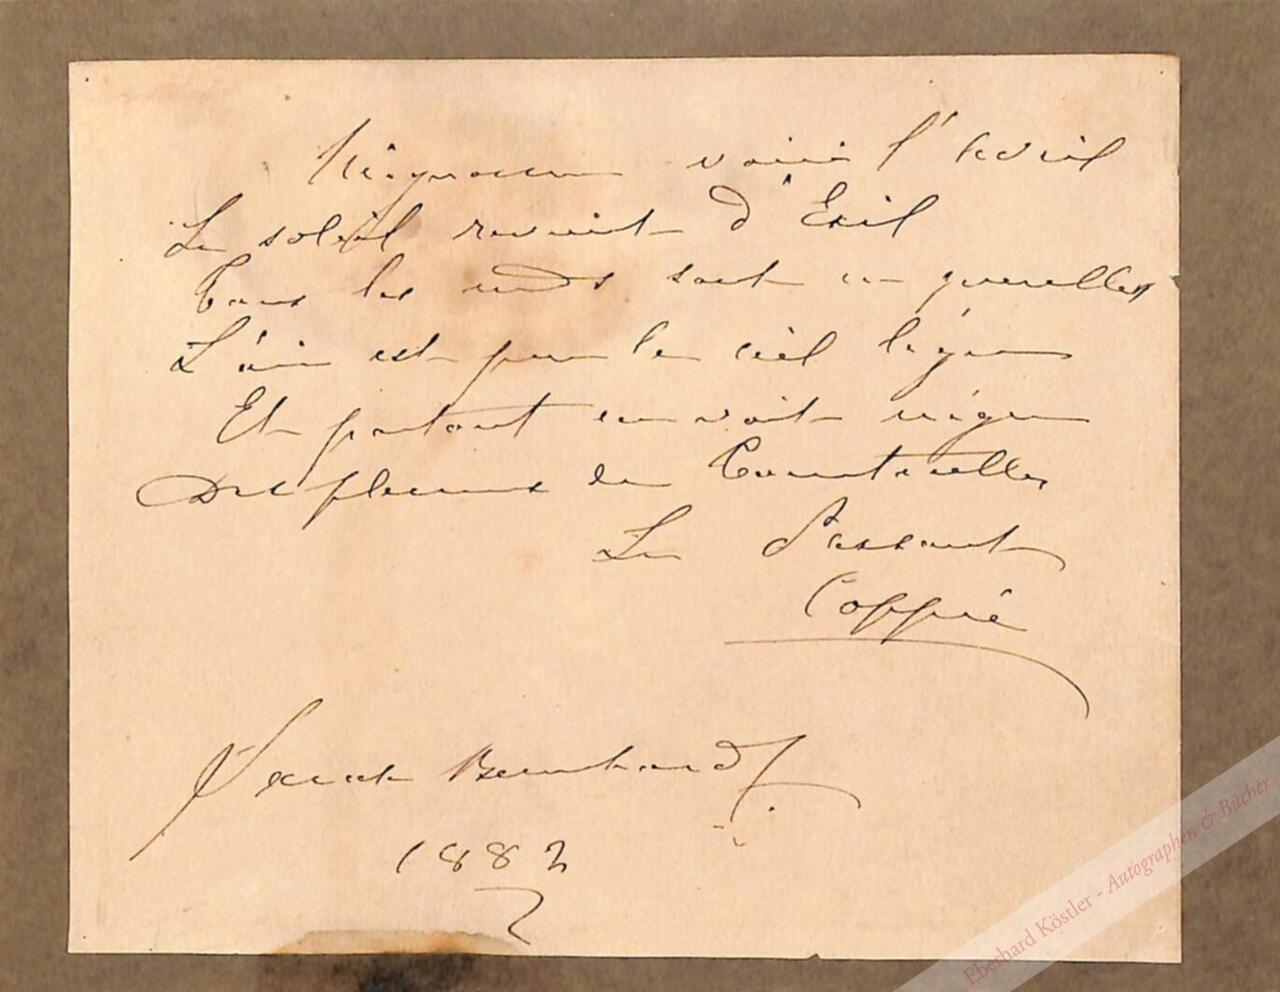 Mignonne voici l'Avril
Le soleil revient d'Exil
Tous les nids sont en querelles
L'air est pur le ciel léger
Et partout on voit neiger
Des plumes de Tourterelles
Le Passant
Coppée
Sarah Bernhardt
1882
Eberhard Köstler - Autographen & Bücher